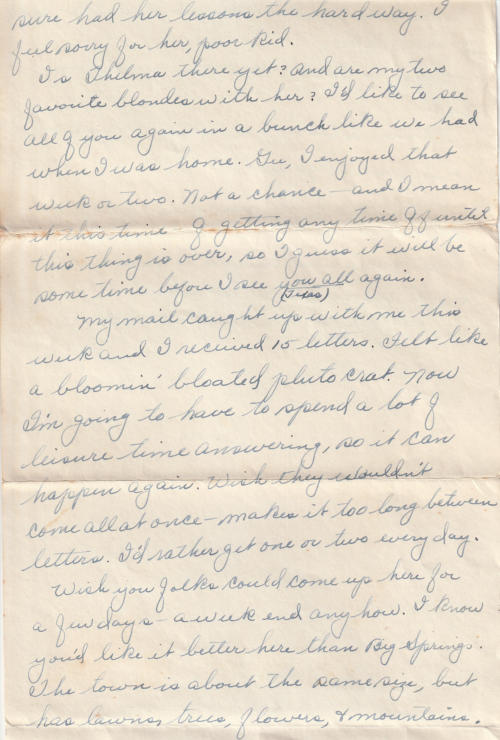 sure had her lessons the hard way. I
feel sorry for her, poor kid.
Is Thelma there yet? and are my two
favorite blondes with her? I'd like to see
all of you again in a bunch like we had
when I was home. Gee, I enjoyed that
week or two. Not a chance - and I mean
it this time of getting any time off until
this thing is over, so I guess it will be
some time before I see you all again.
(Texas)
My mail caught up with me this
week and I received 15 letters. Felt like
a bloomin' bloated plutocrat. Now
I'm going to have to spend a lot of
leisure time answering, so it can
happen again. Wish they wouldn't
come all at once - makes it too long between
letters. I'd rather get one or two every day.
Wish you folks could come up here for
a few days - a week end anyhow. I know
you'd like it better here than Big Springs.
The town is about the same size, but
has lawns, trees, flowers, & mountains.